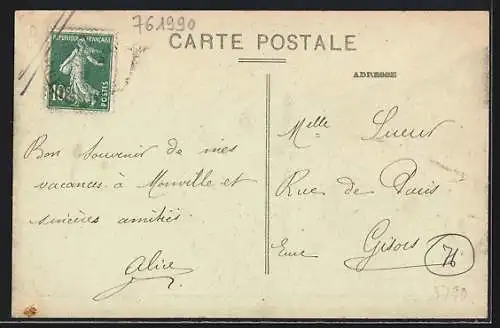 761990
CARTE POSTALE
ADRESSE
REPUBLIQUE FRANÇAISE
10c
POSTES
Bon souvenir de mes
vacances à Monville et
sincères amitiés
Alice
Melle Sueur
Rue de Paris
Gisors
Eure
76